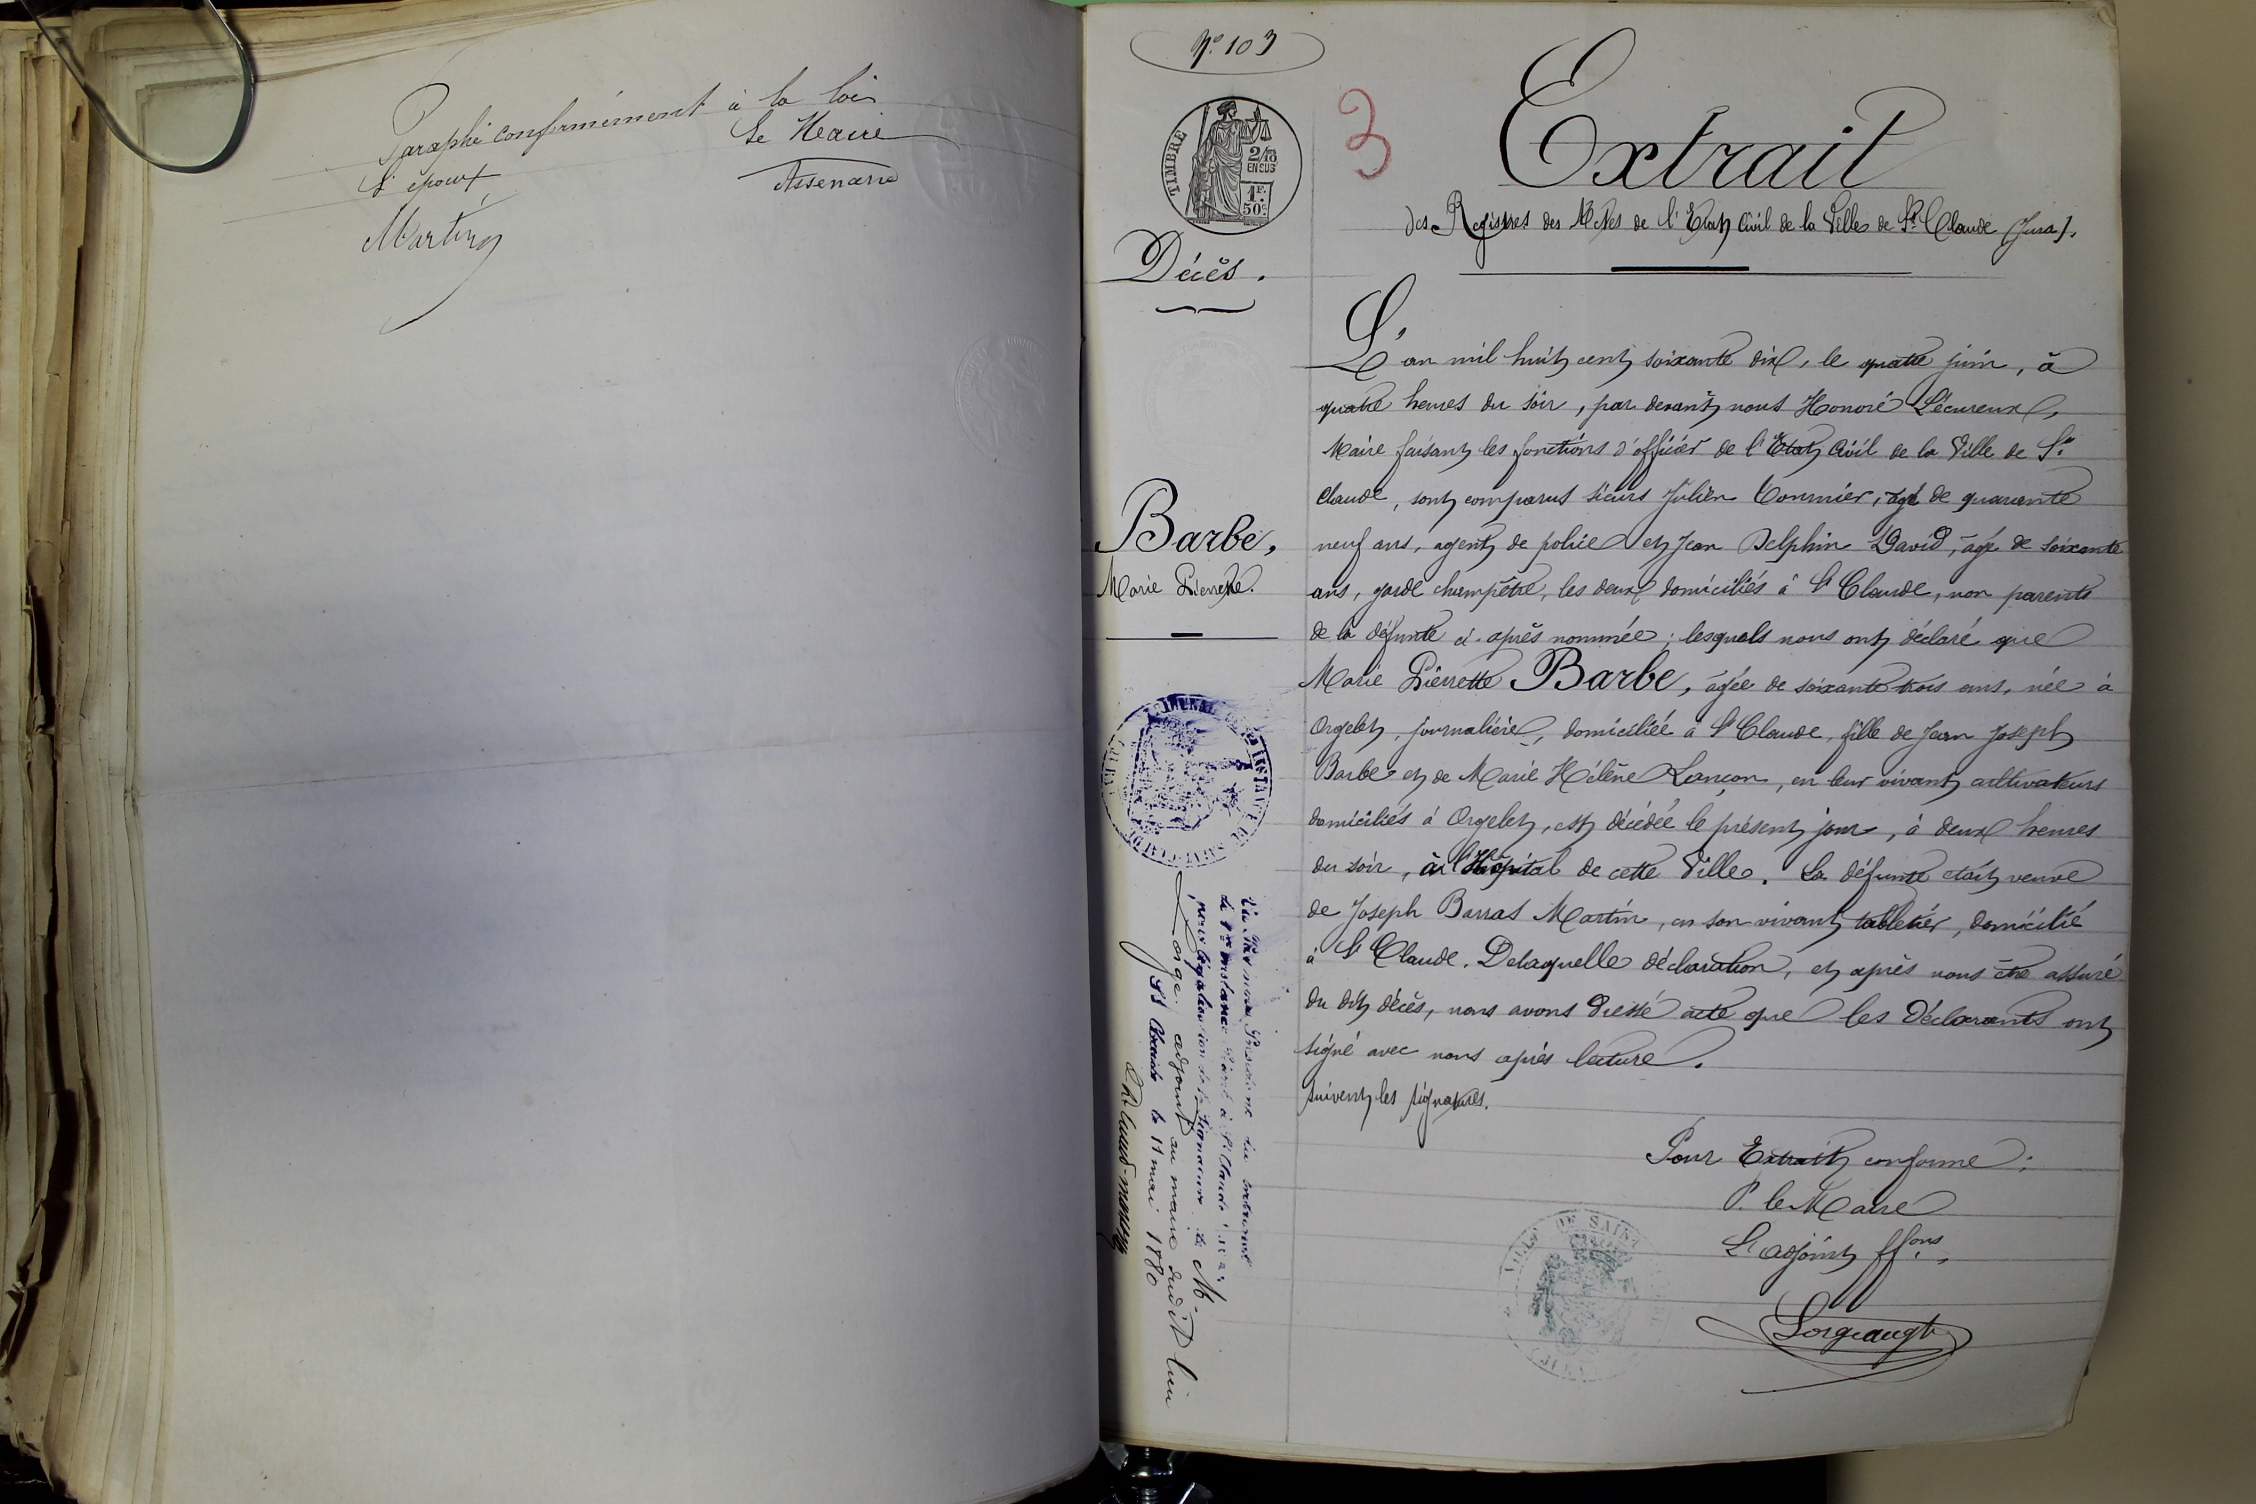 Paraphé conformément à la loi
Le Maire
L'époux
Martin
N° 103
TIMBRE
2/10
EN SUS
1 F.
50 c.
3
Extrait
des Registres des Actes de l'Etat Civil de la Ville de St Claude (Jura).
Décès.
L'an mil huit cent soixante dix, le quatre juin, à
quatre heures du soir, par devant nous Honoré Lécureux,
Maire faisant les fonctions d'officier de l'Etat Civil de la Ville de St
Claude, sont comparus sieurs Julien Commier, âgé de quarante
neuf ans, agent de police et Jean Delphin David, âgé de soixante
ans, garde champêtre, les deux domiciliés à St Claude, non parents
de la défunte ci-après nommée; lesquels nous ont déclaré que
Marie Pierrette Barbe, âgée de soixante trois ans, née à
Orgelet, journalière, domiciliée à St Claude, fille de Jean Joseph
Barbe et de Marie Hélène Lançon, en leur vivant cultivateurs
domiciliés à Orgelet, est décédée le présent jour, à deux heures
du soir, à l'Hôpital de cette Ville. La défunte était veuve
de Joseph Barras Martin, en son vivant tabletier, domicilié
à St Claude. De laquelle déclaration, et après nous être assuré
du dit décès, nous avons dressé acte que les Déclarants ont
signé avec nous après lecture.
suivent les signatures.
Barbe,
Marie Pierrette.
Pour Extrait conforme:
P. le Maire
L'adjoint ff.ons
TRIBUNAL DE 1re INSTANCE DE SAINT-CLAUDE
Vu par nous Président du tribunal
de 1re instance séant à St Claude (Jura)
pour légalisation de la signature de M.
adjoint au maire dudit lieu
St Claude le 11 mai 1880
VILLE DE SAINT
(JURA)